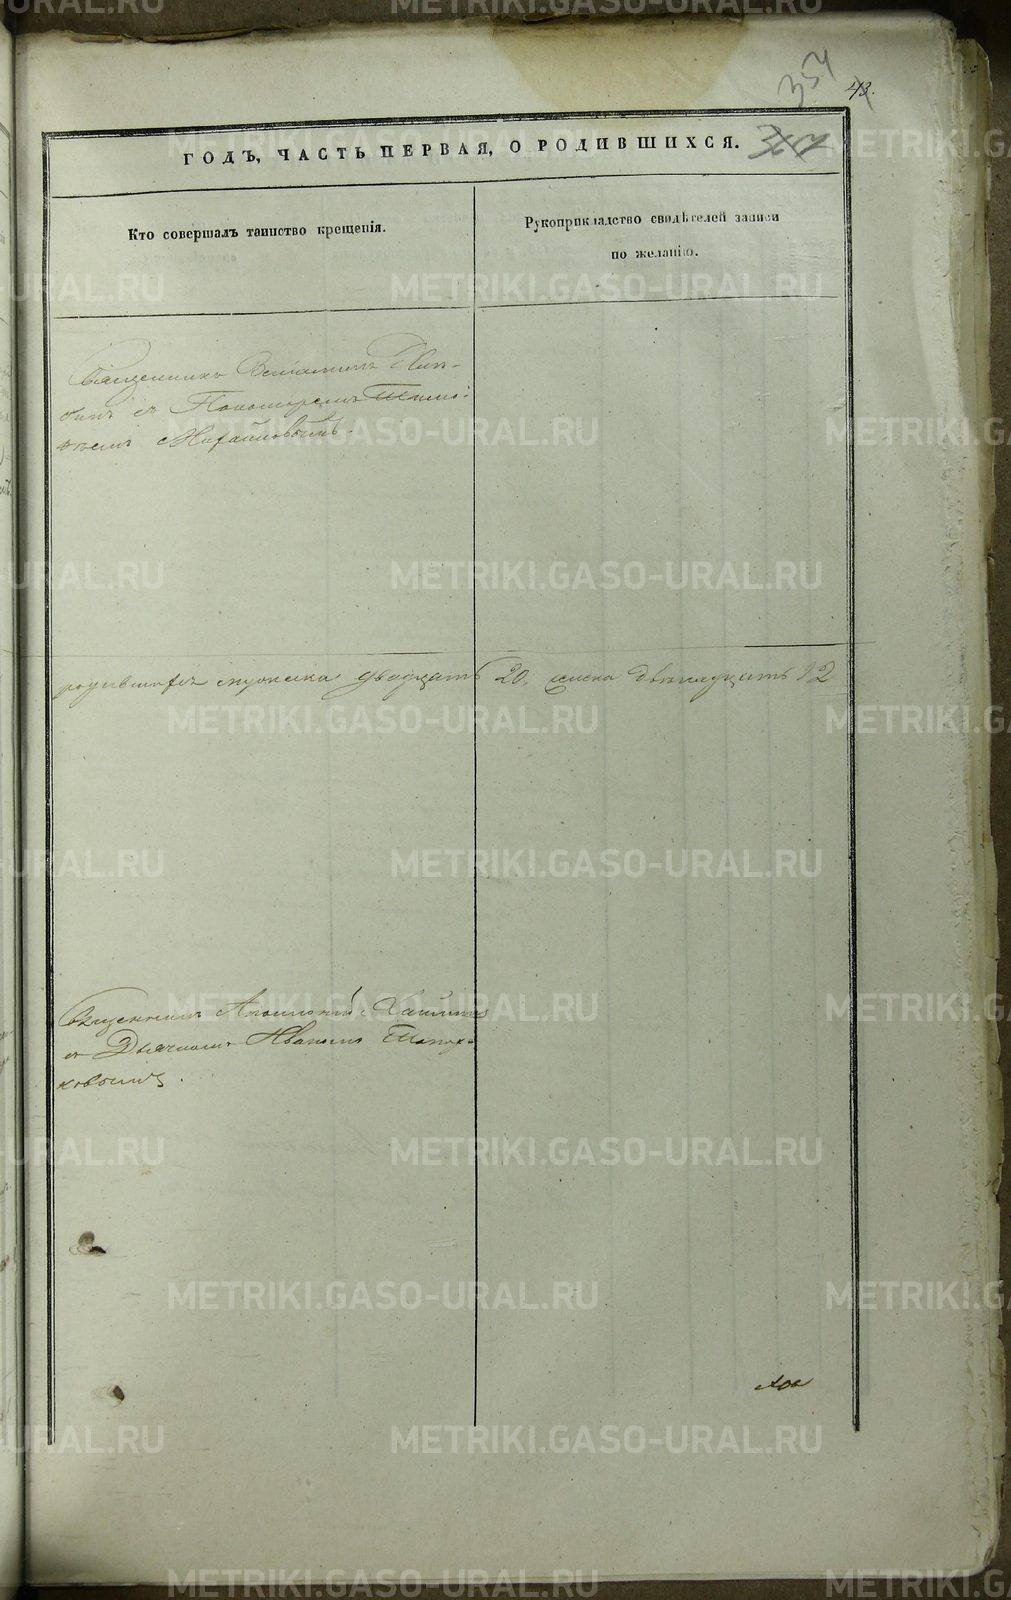 354
43.
ГОДЪ, ЧАСТЬ ПЕРВАЯ, О РОДИВШИХСЯ.
Кто совершалъ таинство крещенія.
Рукоприкладство свидѣтелей записи
по желанію.
Священникъ Веніаминъ
съ Пономаремъ Тимо-
ѳеемъ Михайловымъ.
родившихся мужеска двадцать 20, женска двенадцать 12
Священникъ Аполлоній
съ Дьячкомъ Иваномъ Топор-
ковымъ.
METRIKI.GASO-URAL.RU